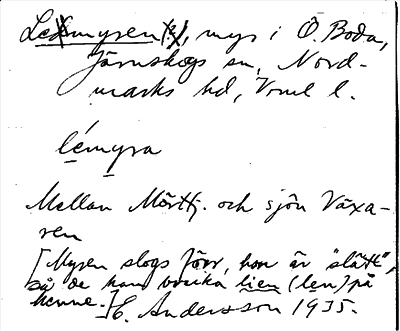 Lemyren (?), myr i Ö. Boda,
Järnskogs sn, Nord-
marks hd, Vrml l.
lémyra
Mellan Mörttj. och sjön Växa-
ren
[Myren slogs förr, hon är "slätt",
så de kan bruka lien (len) på
henne.] C. Andersson 1935.